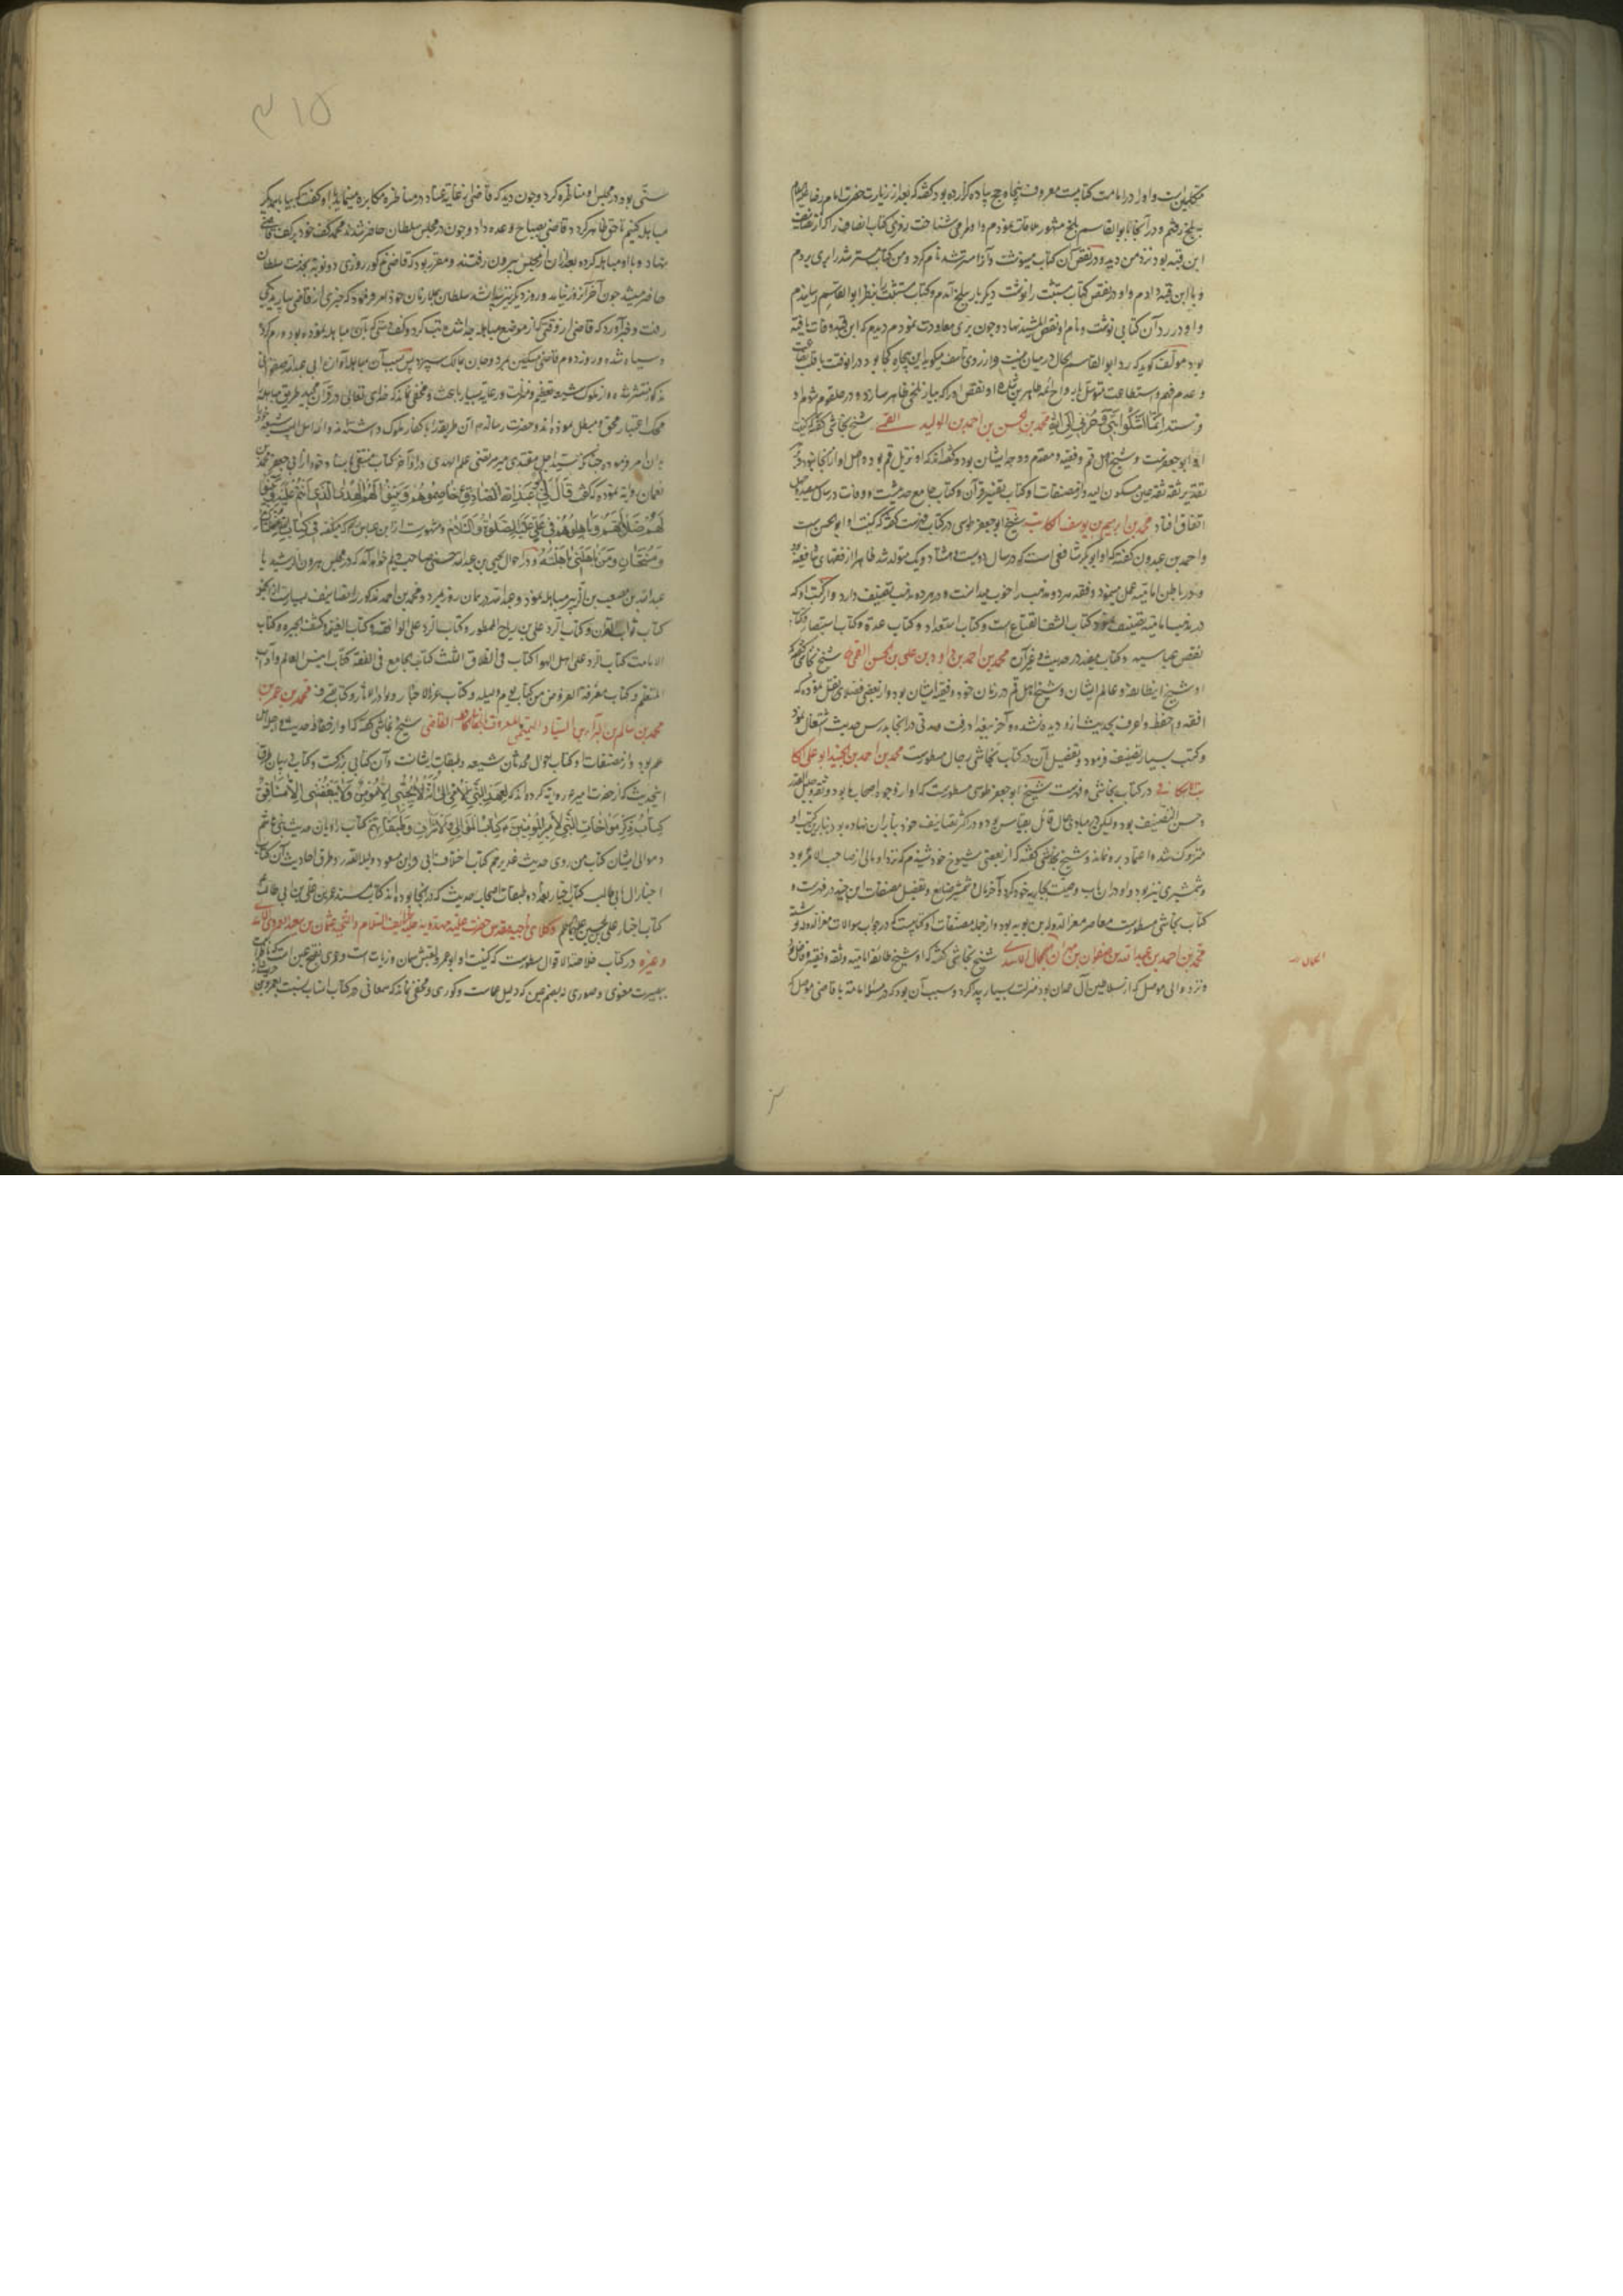 متکلمین است و او را در امامت کتابیست معروف پنجاه حج پیاده گزارده بود گفته که بعد از زیارت حضرت امام رضا علیه السلام
به بلخ رفتم و در آنجا با ابوالقاسم بلخی مشهور ملاقات نمودم و او مرا می شناخت روزی کتاب انصاف را که از تصانیف
ابن قبه بود نزد من دید و در نقض آن کتاب مینوشت و آنرا مسترشد نام کرد و من کتاب مسترشد را بری بردم
و با ابن قبه دادم و او در نقض کتاب مستثبت را نوشت دیگر بار ببلخ آمدم و کتاب مستثبت را بنظر ابوالقاسم رسانیدم
و او در رد آن کتابی نوشت و نام او نقض المستثبت نهاد و چون بری معاودت نمودم دیدم که ابن قبه وفات یافته
بود مؤلف گوید که رد ابوالقاسم الحال در میان نیست و از روی تأسف میگوید این بیچاره کجا بود در آنوقت با قلت بضاعت
و عدم فهم و استطاعت
انما اشکوا بثی و حزنی الی الله محمد بن الحسن بن احمد بن الولید القمی شیخ نجاشی گفته که کنیت
او ابوجعفر است و شیخ اهل قم و فقیه و مقدم و وجه ایشان بود و گفته اند که او نزیل قم بوده و اصل او از آنجا نبود
ثقه ثقه عین مسکون الیه و از مصنفات او کتاب تفسیر قرآن و کتاب جامع حدیث است و وفات در سال
اتفاق افتاد محمد بن ابراهیم بن یوسف الکاتب شیخ ابوجعفر طوسی در کتاب فهرست گفته که کنیت او ابوالحسن است
و احمد بن عبدون گفته که او ابوبکر شافعی است که در سال دویست و هشتاد و یک متولد شد ظاهرا از فقهای شافعیه بود
و در باطن امامیه عمل مینمود و فقه هر دو مذهب را خوب میدانست و در هر دو مذهب تصنیف دارد و از کتب او که
در مذهب امامیه تصنیف نموده کتاب کشف القناع است و کتاب استعداد و کتاب عده و کتاب استبصار و کتاب
نقض عباسیه و کتاب مفید در حدیث و غیر آن محمد بن احمد بن داود بن علی بن الحسن القمی شیخ نجاشی گفته که
او شیخ این طایفه و عالم ایشان و شیخ اهل قم در زمان خود و فقیه ایشان بود و از بعضی فضلای نقل نموده که
افقه و احفظ و اعرف بحدیث از او دیده نشده و آخر ببغداد رفت و مدتی در آنجا بدرس حدیث اشتغال نمود
و کتب بسیار تصنیف فرمود و تفصیل آن در کتاب نجاشی رجال مسطورست محمد بن احمد بن الجنید ابوعلی الکا
تب الاسکافی در کتاب نجاشی و فهرست شیخ ابوجعفر طوسی مسطورست که او از وجوه اصحاب ما بود و ثقه و جلیل القدر
و حسن التصنیف بود و لیکن در مبادی حال قائل بقیاس بوده و در اکثر تصانیف خود بنا بر آن نهاده بود بنابرین کتب او
متروک شده اعتماد بر او نمانده و شیخ نجاشی گفته که از بعضی شیوخ خود شنیدم که نزد او مالی از صاحب الامر بود
و شمشیری نیز بود و او در آن باب وصیت بجاریه خود کرد و آخر مال و شمشیر ضایع و تفصیل مصنفات ابن جنید در فهرست و
کتاب نجاشی مسطورست معاصر معز الدوله بن بویه بود و از جمله مصنفات او کتابیست که در جواب سوالات معز الدوله نوشته
محمد بن احمد بن عبدالله بن صفوان بن مهران الجمال الاسدی شیخ نجاشی گفته که او شیخ طائفه امامیه و ثقه و فقیه و فاضل بود
و نزد والی موصل که از سلاطین آل حمدان بود منزلت بسیار پیدا کرد و سبب آن بود که در مسئله امامت با قاضی موصل که
الجمال
۳۱۵
سنی بود در مجلس او مناظره کرد و چون دید که قاضی از غایت عناد در مناظره مکابره مینماید با او گفت که بیا با یکدیگر
مباهله کنیم تا حق ظاهر گردد قاضی بصباح وعده داد و چون در مجلس سلطان حاضر شدند محمد کف خود بر کف قاضی
نهاد و با او مباهله کرده بعد از آن از مجلس بیرون رفتند و مقرر بود که قاضی مذکور روزی دو نوبت بخدمت سلطان
حاضر میشد چون آخر آنروز نیامد و روز دیگر نیز نیامد سلطان بملازمان خود امر فرمود که خبری از قاضی بیارید یکی
رفت و خبر آورد که قاضی از وقتی که از موضع مباهله جدا شد تب کرد و کف دستی که بآن مباهله نموده بود ورم کرد
و سیاه شده و روز دوم قاضی مسکین بمرد و جان بمالک سپرد پس بسبب آن مباهله آوازه ابی عبدالله صفوانی
مذکور منتشر شده و از ملوک شیعه تعظیم و منزلت و رعایت بسیار یافت و مخفی نماند که خدای تعالی در قرآن مجید طریق مباهله را
محک اعتبار محق و مبطل نموده اند و حضرت رسالت هم آن طریقه را با کفار مسلوک داشته اند و ائمه اهل البیت شیعه خود را
بآن امر فرموده چنانکه سید اجل مقتدی میر مرتضی علم الهدی در آخر کتاب منتقی باسناد خود از ابی جعفر محمد بن
نعمان روایت نموده که گفت قال لی ابو عبدالله الصادق ع خاصموهم و بینوا لهم الهدی الذی انتم علیه و بینوا
لهم ضلالهم و باهلوهم فی علی علیه الصلوة و السلام و مشهورست از ابن عباس که میگفته
و من باهلنی باهلته و در احوال یحیی بن عبدالله حسنی صاحب دیلم خواهد آمد که در مجلس هرون الرشید با
عبدالله بن مصعب بن الزبیر مباهله نمود و عبدالله در همان روز بمرد و محمد بن احمد مذکور را تصانیف بسیارست از آنجمله
کتاب ثواب القرآن و کتاب الرد علی بن رباح الممطور و کتاب الرد علی الواقفه و کتاب الغیبه و کشف الحیره و کتاب
الامامت کتاب الرد علی اهل الاهوا کتاب فی الطلاق الثلث کتاب الجامع فی الفقه کتاب انیس العالم و آداب
المتعلم و کتاب معرفه الفروض من کتاب یوم و لیله و کتاب غرر الاخبار و نوادر الآثار و کتاب محمد بن عمر بن
محمد بن سالم بن البراء بن السیار التمیمی المعروف بالجعابی القاضی شیخ نجاشی گفته که او از حفاظ حدیث و اجلاء اهل
علم بود و از مصنفات او کتاب احوال محدثان شیعه و طبقات ایشانست و آن کتابی بزرگست و کتاب در بیان طرق
اینحدیث که از حضرت امیر ع روایت کرده اند که لعهد النبی الامی الی انه لا یحبنی الا مؤمن و لا یبغضنی الا منافق
کتاب ذکر مواخات النبی لامیر المؤمنین ع کتاب الموالی الاشراف و طبقاتهم کتاب راویان حدیث بنی هاشم
و موالی ایشان کتاب من روی حدیث غدیر خم کتاب اختلاف ابی و ابن مسعود و لیله القدر و طرق احادیث آن کتاب
اخبار آل ابی طالب کتاب اخبار بغداد و طبقات اصحاب حدیث که در آنجا بوده اند کتاب مسند عمر بن علی بن ابی طالب
کتاب اخبار علی بن الحسین علیهم السلام وکلای ناحیه مقدس حضرت خلیفه مهدویه علیه السلام و التحیه عثمان بن سعید العمروی الاسدی
و غیره در کتاب خلاصة الاقوال مسطورست که کنیت او ابوعمرو و لقبش سمان و زیات است و عمری بفتح عین است
بصیرت معنوی و صوری نه بضم عین که دلیل عماست و کوری و مخفی نماند که سمعانی در کتاب انساب نسبت بعمرو بن